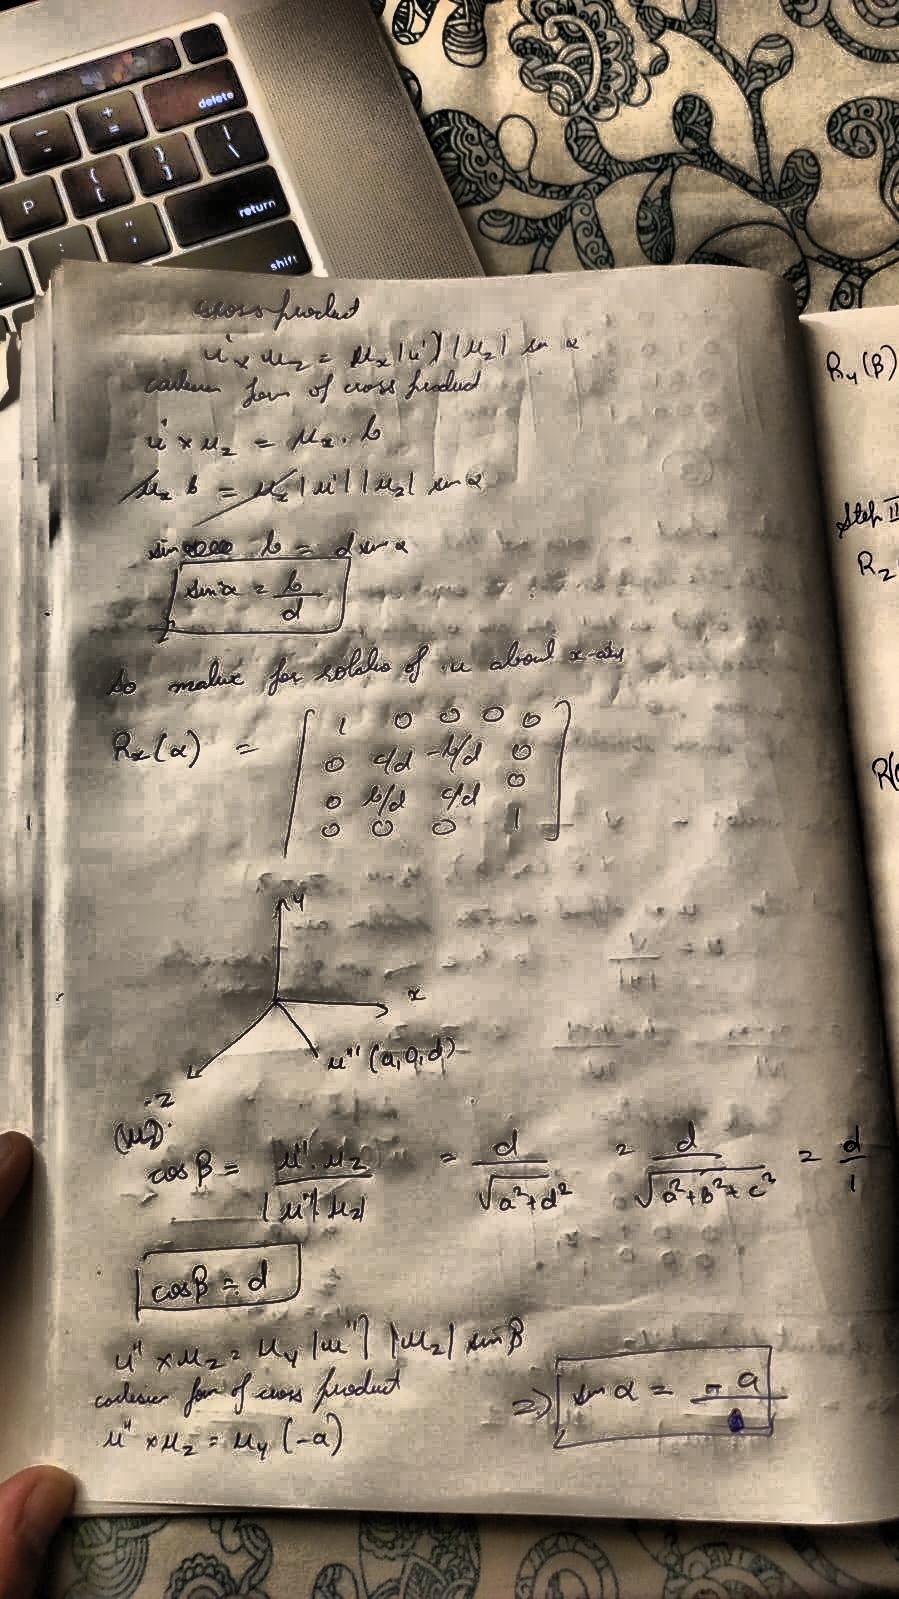 delete
+
=
-
P
{
[
}
]
|
\
return
:
"
,
shift
cross product
u' × u_z = u_x |u'| |u_z| sin α
cartesien form of cross product
u' × u_z = u_x . b
u_x b = u_x |u'| |u_z| sin α
sin b = d sin α
sin α = b/d
So matrix for rotatio of u about x-axis
R_x(α) =
1 0 0 0 0
0 c/d -b/d 0
0 b/d c/d 0
0 0 0 1
y
x
u'' (a, 0, d)
z
(u_z)
cos β = u''. u_z / |u''| |u_z| = d / √a²+d² = d / √a²+b²+c² = d/1
cos β = d
u'' × u_z = u_y |u''| |u_z| sin β
cartesien form of cross product
u'' × u_z = u_y (-a)
=> sin α = - a
R_y(β)
Step II
R_z
R(